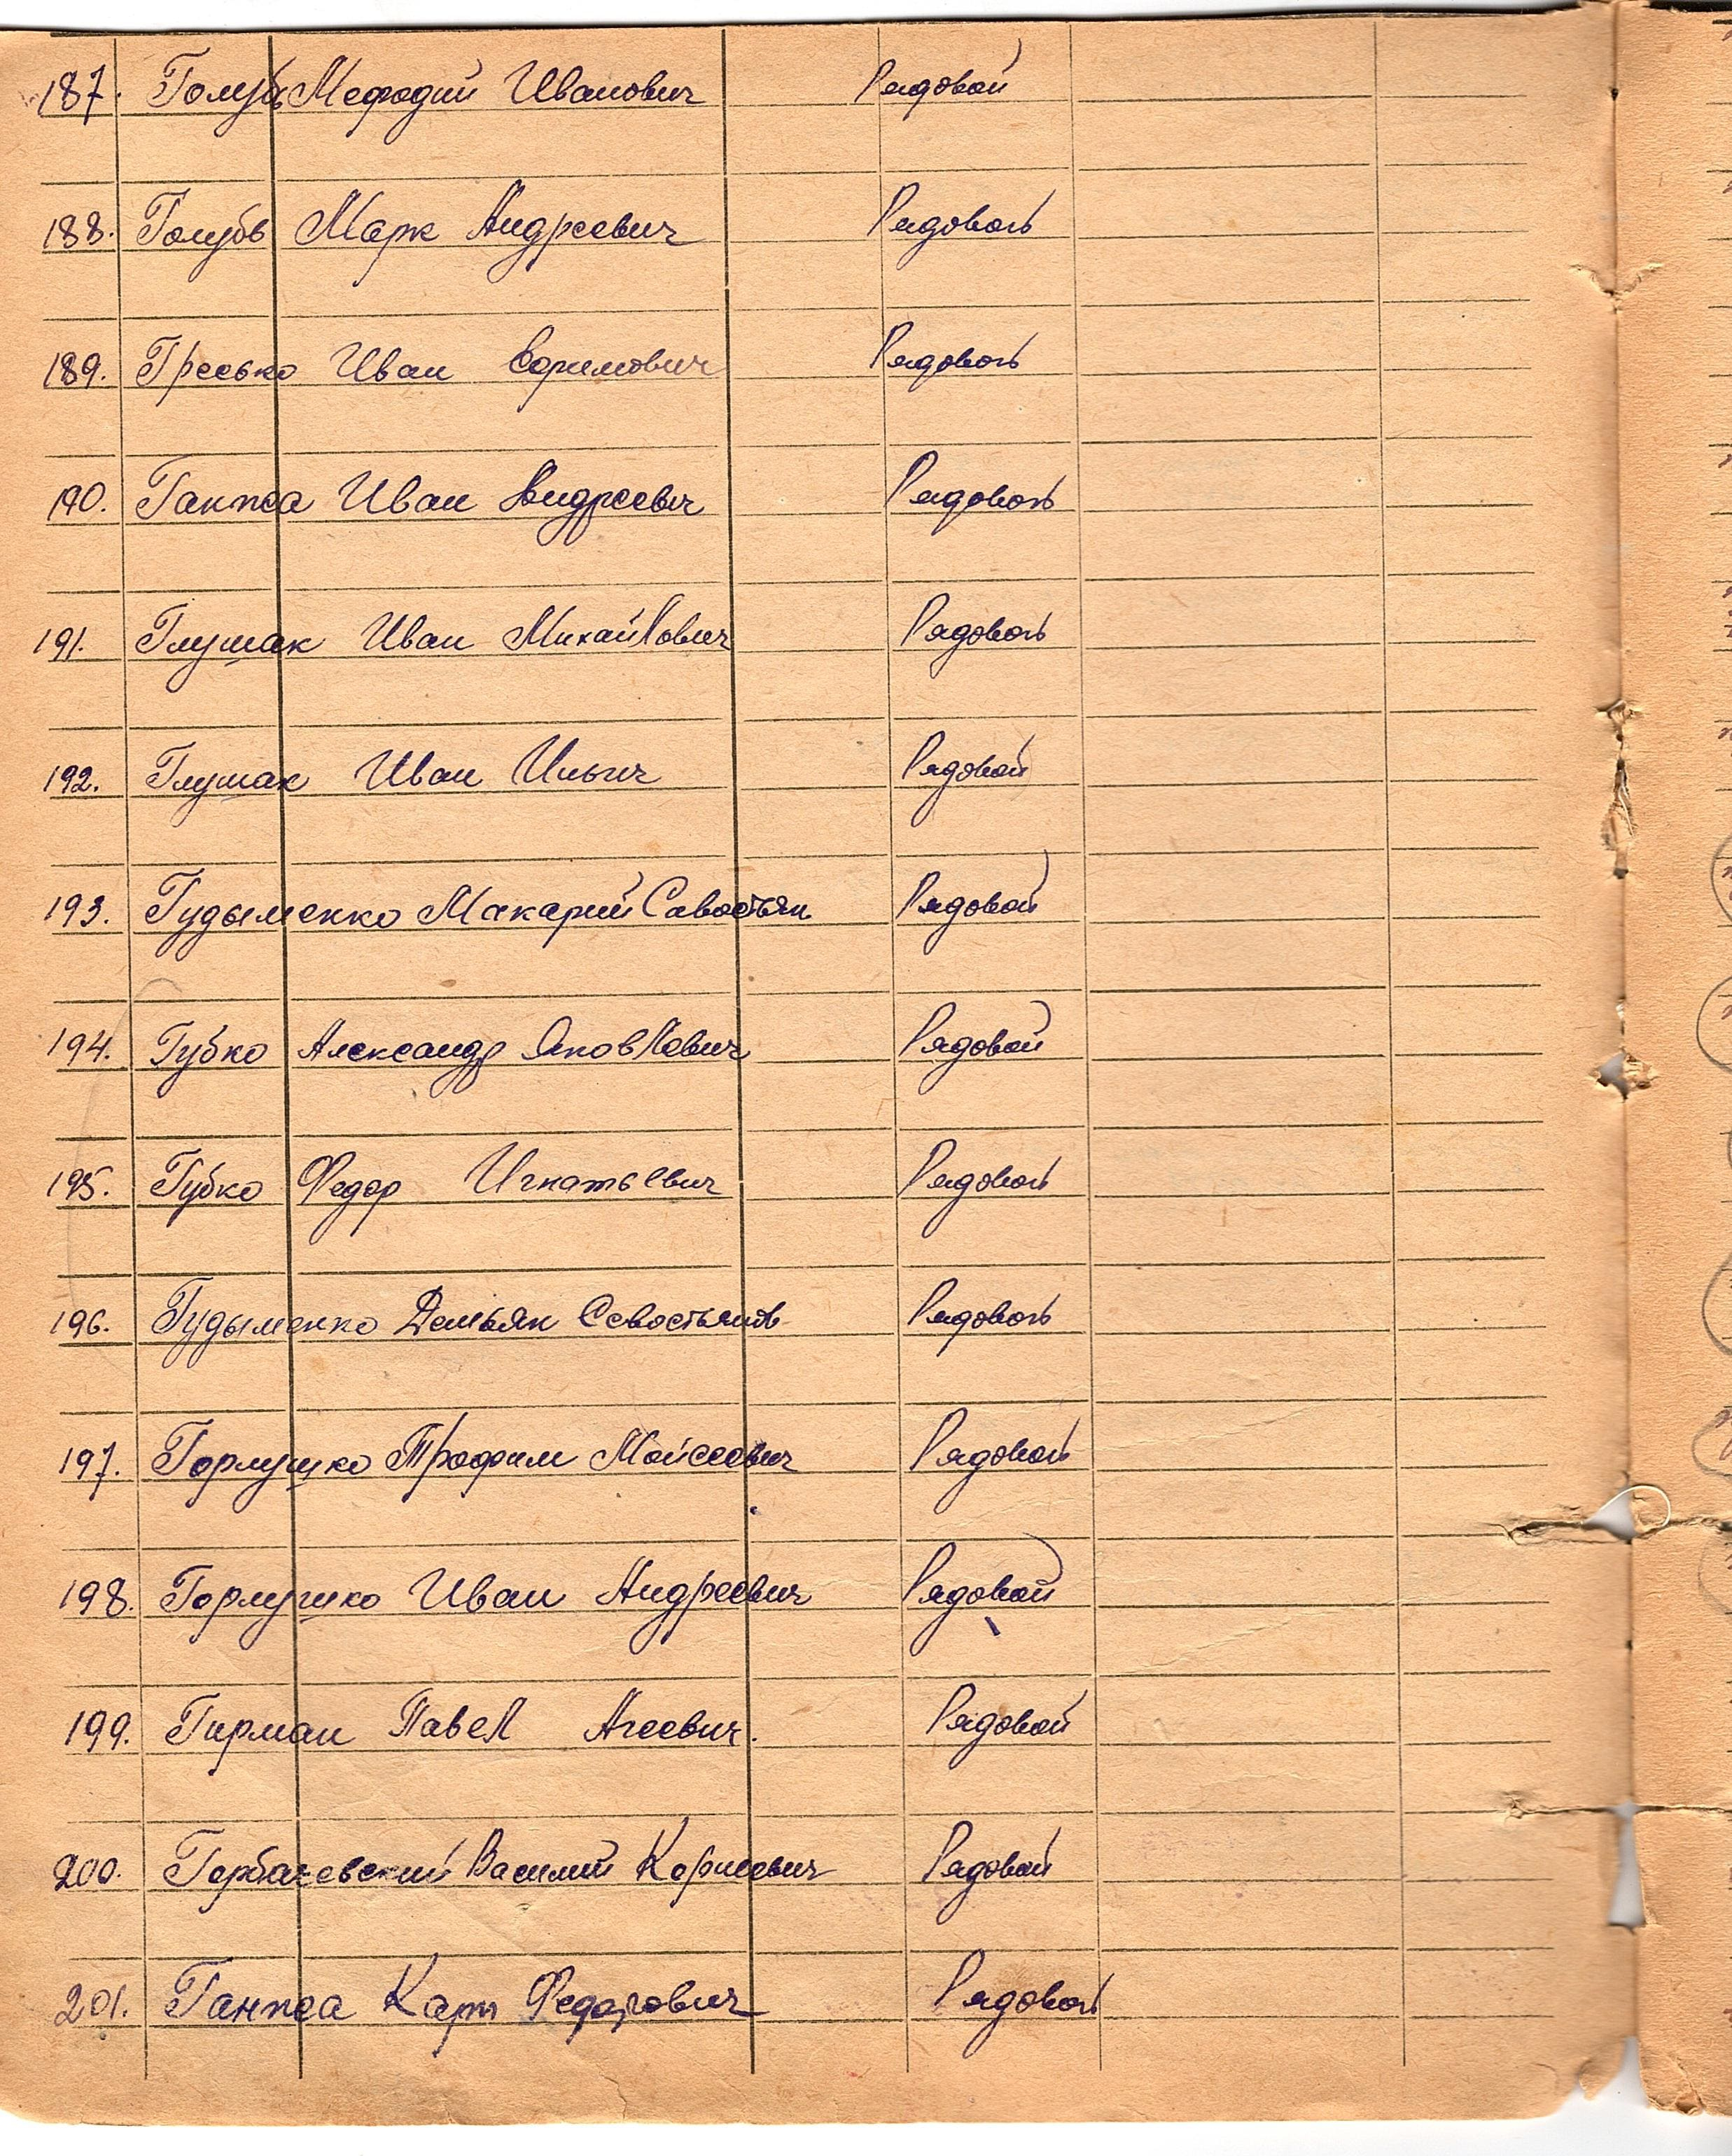 187. Голубь Мефодий Иванович Рядовой
188. Голубь Марк Андреевич Рядовой
189. Гресько Иван Ефимович Рядовой
190. Гапжа Иван Андреевич Рядовой
191. Глушак Иван Михайлович Рядовой
192. Глушак Иван Ильич Рядовой
193. Гудыменко Макарий Савостьян Рядовой
194. Губко Александр Яковлевич Рядовой
195. Губко Федор Игнатьевич Рядовой
196. Гудыменко Демьян Севостьянов Рядовой
197. Горлушко Трофим Мойсеевич Рядовой
198. Горлушко Иван Андреевич Рядовой
199. Гирман Павел Агеевич. Рядовой
200. Горбачевский Василий Корнеевич Рядовой
201. Карп Федорович Рядовой